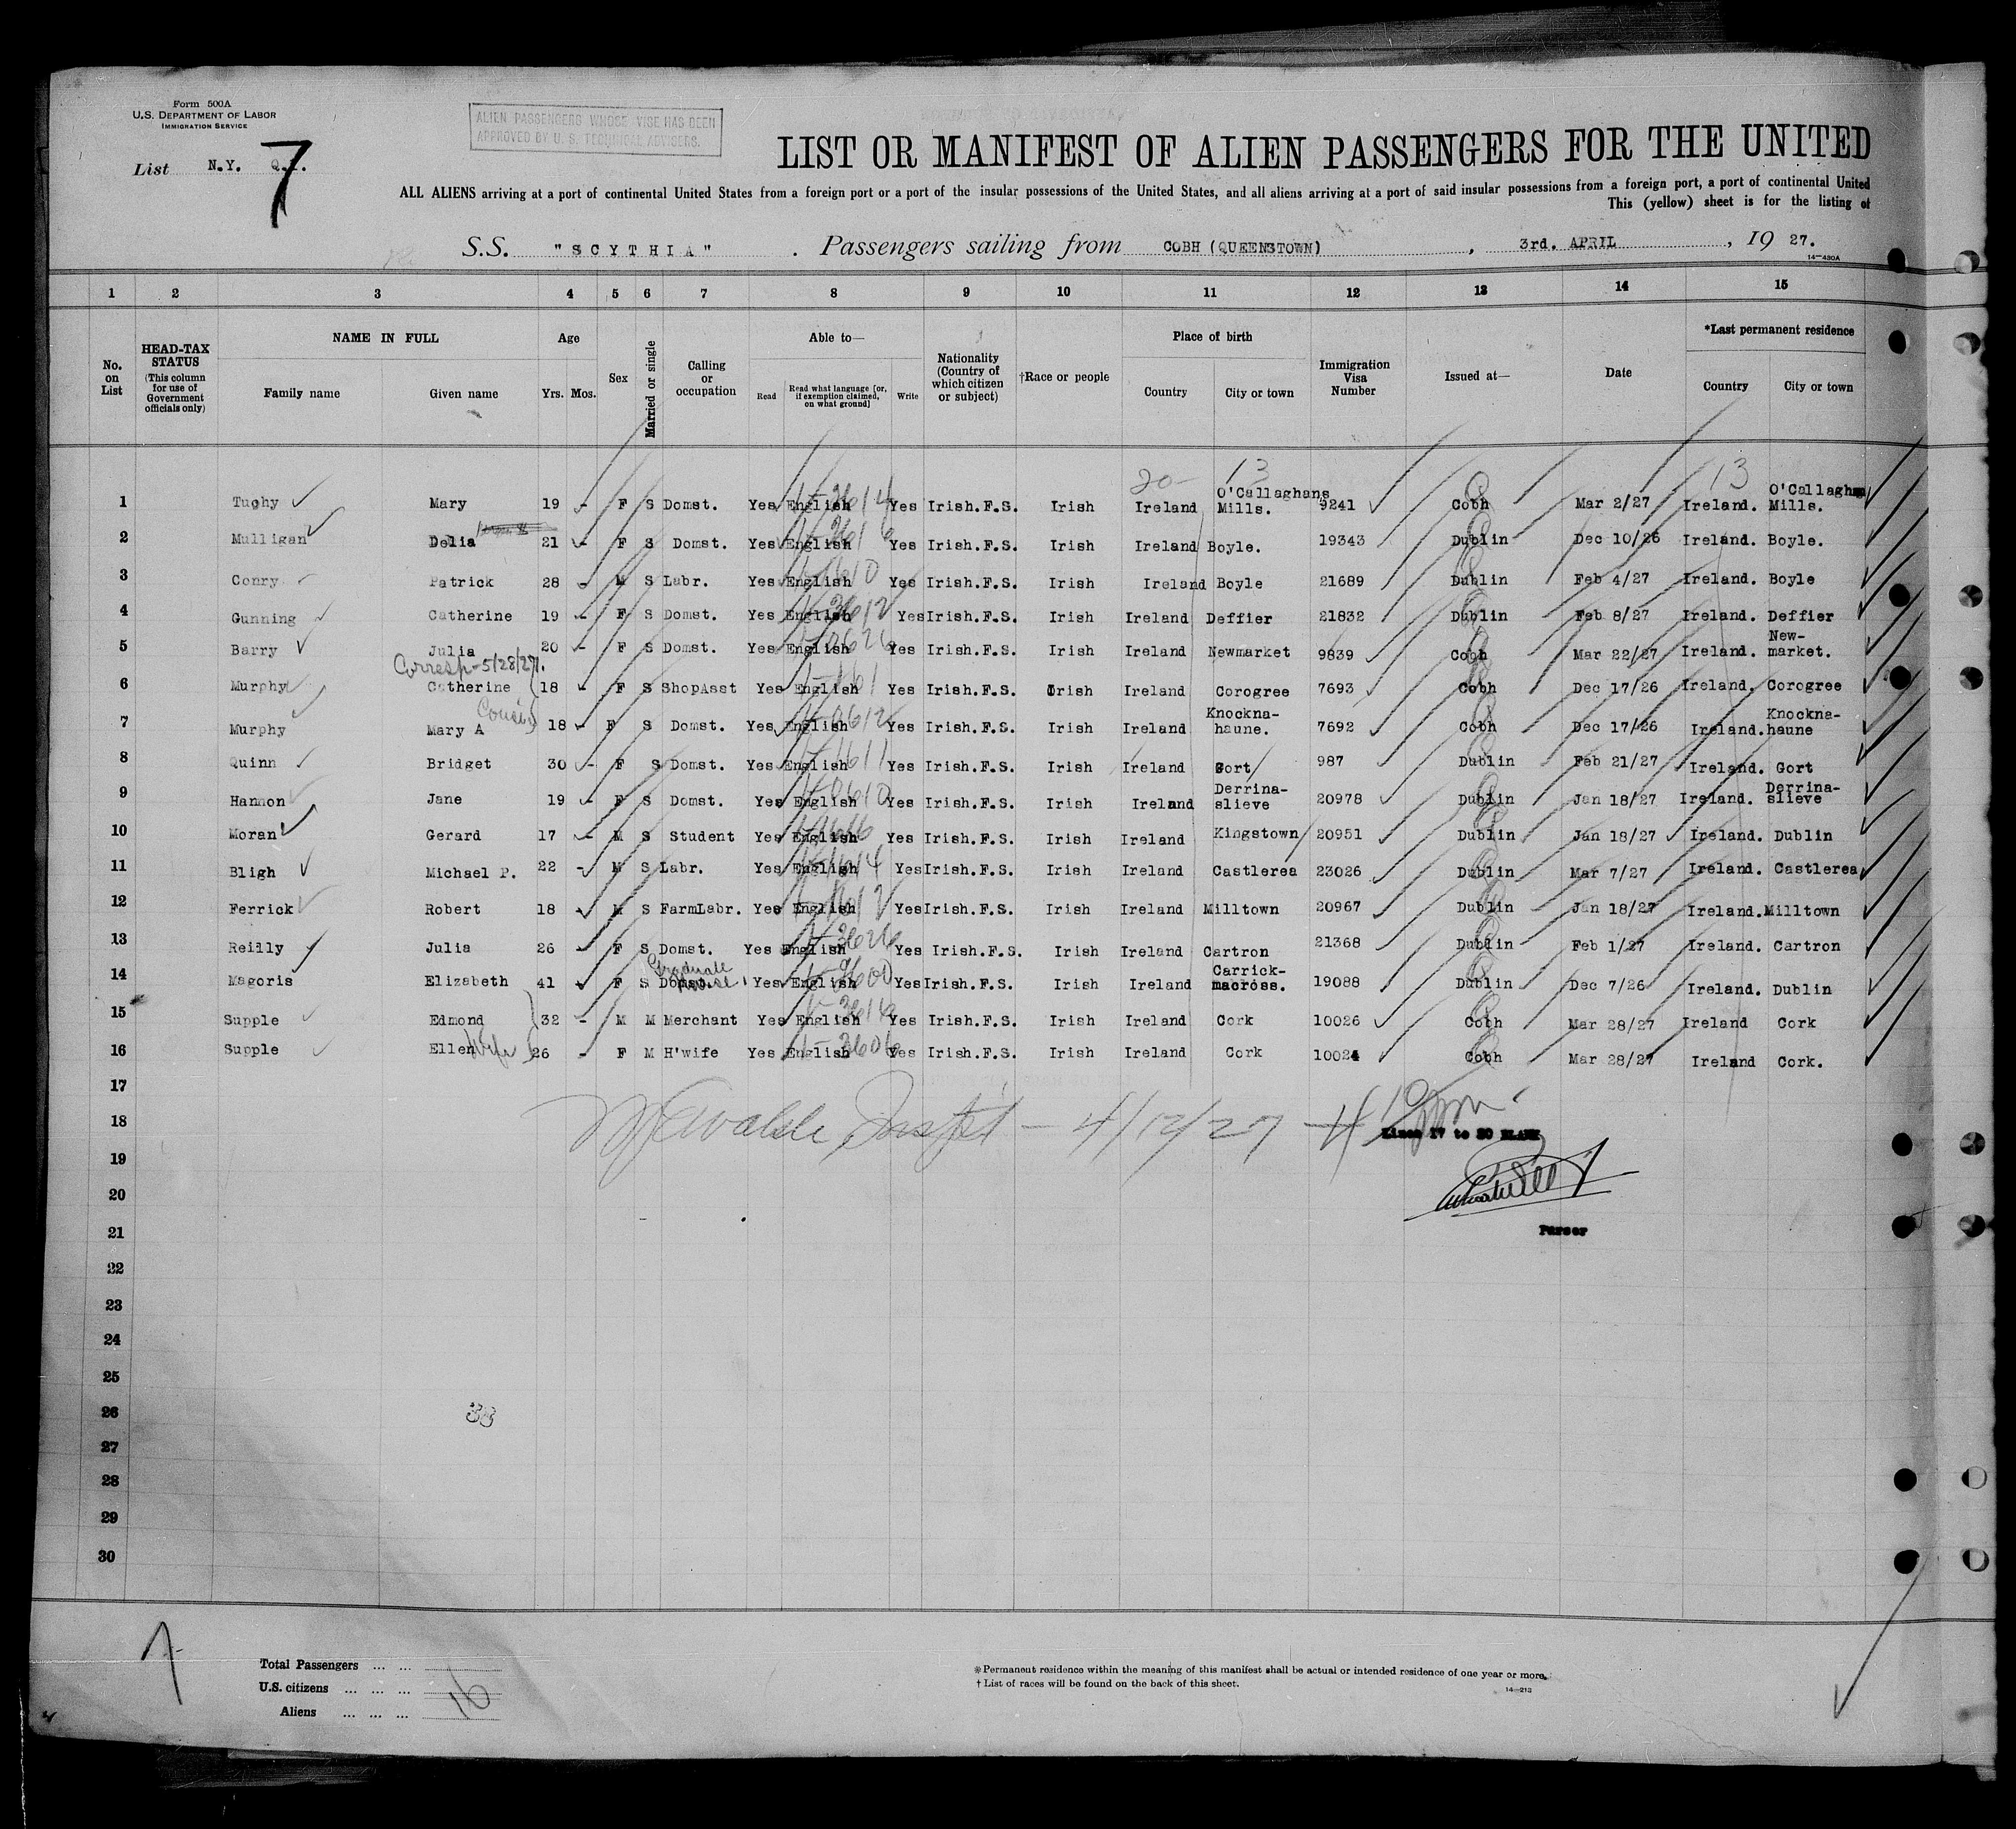 Form 500A
U.S. DEPARTMENT OF LABOR
IMMIGRATION SERVICE
ALIEN PASSENGERS WHOSE VISE HAS BEEN
APPROVED BY U. S. TECHNICAL ADVISERS.
List N.Y. 7
LIST OR MANIFEST OF ALIEN PASSENGERS FOR THE UNITED
ALL ALIENS arriving at a port of continental United States from a foreign port or a port of the insular possessions of the United States, and all aliens arriving at a port of said insular possessions from a foreign port, a port of continental United
This (yellow) sheet is for the listing of
S.S. "SCYTHIA" . Passengers sailing from COBH (QUEENSTOWN) , 3rd. APRIL , 19 27.
14—430A
1 2 3 4 5 6 7 8 9 10 11 12 13 14 15
No. on List
HEAD-TAX STATUS (This column for use of Government officials only)
NAME IN FULL
Family name Given name
Age
Yrs. Mos.
Sex
Married or single
Calling or occupation
Able to—
Read
Read what language [or, if exemption claimed, on what ground]
Write
Nationality (Country of which citizen or subject)
†Race or people
Place of birth
Country City or town
Immigration Visa Number
Issued at—
Date
*Last permanent residence
Country City or town
20- 13 13
1 Tuohy Mary 19 - F S Domst. Yes English Yes Irish.F.S. Irish Ireland O'Callaghans Mills. 9241 Cobh Mar 2/27 Ireland. O'Callaghan Mills.
2 Mulligan Delia 21 - F S Domst. Yes English Yes Irish.F.S. Irish Ireland Boyle. 19343 Dublin Dec 10/26 Ireland. Boyle.
3 Conry Patrick 28 - M S Labr. Yes English Yes Irish.F.S. Irish Ireland Boyle 21689 Dublin Feb 4/27 Ireland. Boyle
4 Gunning Catherine 19 - F S Domst. Yes English Yes Irish.F.S. Irish Ireland Deffier 21832 Dublin Feb 8/27 Ireland. Deffier
5 Barry Julia 20 - F S Domst. Yes English Yes Irish.F.S. Irish Ireland Newmarket 9839 Cobh Mar 22/27 Ireland. New-market.
Corresp-5/28/27.
6 Murphy Catherine 18 - F S ShopAsst Yes English Yes Irish.F.S. Irish Ireland Corogree 7693 Cobh Dec 17/26 Ireland. Corogree
Cousin
7 Murphy Mary A 18 - F S Domst. Yes English Yes Irish.F.S. Irish Ireland Knockna-haune. 7692 Cobh Dec 17/26 Ireland. Knockna-haune
8 Quinn Bridget 30 - F S Domst. Yes English Yes Irish.F.S. Irish Ireland Gort 987 Dublin Feb 21/27 Ireland. Gort
9 Hannon Jane 19 - F S Domst. Yes English Yes Irish.F.S. Irish Ireland Derrina-slieve 20978 Dublin Jan 18/27 Ireland. Derrina-slieve
10 Moran Gerard 17 - M S Student Yes English Yes Irish.F.S. Irish Ireland Kingstown 20951 Dublin Jan 18/27 Ireland. Dublin
11 Bligh Michael P. 22 - M S Labr. Yes English Yes Irish.F.S. Irish Ireland Castlerea 23026 Dublin Mar 7/27 Ireland. Castlerea
12 Ferrick Robert 18 - M S FarmLabr. Yes English Yes Irish.F.S. Irish Ireland Milltown 20967 Dublin Jan 18/27 Ireland. Milltown
13 Reilly Julia 26 - F S Domst. Yes English Yes Irish.F.S. Irish Ireland Cartron 21368 Dublin Feb 1/27 Ireland. Cartron
Graduate Nurse
14 Magoris Elizabeth 41 - F S Domst. Yes English Yes Irish.F.S. Irish Ireland Carrick-macross. 19088 Dublin Dec 7/26 Ireland. Dublin
15 Supple Edmond 32 - M M Merchant Yes English Yes Irish.F.S. Irish Ireland Cork 10026 Cobh Mar 28/27 Ireland Cork
16 Supple Ellen Wife 26 - F M H'wife Yes English Yes Irish.F.S. Irish Ireland Cork 10024 Cobh Mar 28/27 Ireland Cork.
17
18 4/12/27
Lines 17 to 30 BLANK
19
20
21 Purser
22
23
24
25
26 38
27
28
29
30
Total Passengers ... ...
U.S. citizens ... ... ... 16
Aliens ... ... ...
*Permanent residence within the meaning of this manifest shall be actual or intended residence of one year or more.
†List of races will be found on the back of this sheet.
14—213